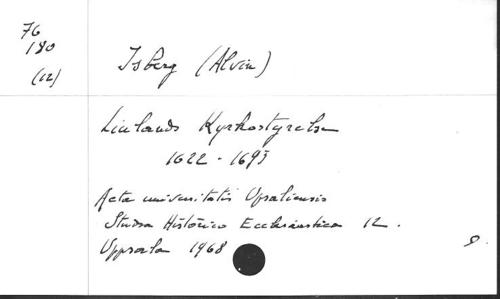 76
180
(12)
Isberg (Alvin)
Livlands Kyrkostyrelse
1622 - 1695
Acta universitatis Upsaliensis
Studia Historico Ecclesiastica 12.
Uppsala 1968